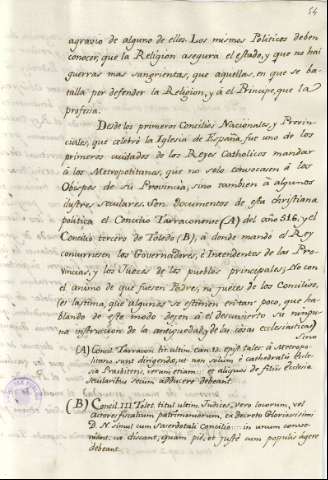 54
agravio de alguno de ellos. Los mismos Politicos deben
conocer, que la Religion asegura el estado, y que no hai
guerras mas sangrientas, que aquellas, en que se ba-
talla por defender la Religion, y á el Principe, que la
profesa.
Desde los primeros Concilios Nacionales, y Provin-
ciales, que celebró la Iglesia de España, fue uno de los
primeros cuidados de los Reyes Catholicos mandar
á los Metropolitanos, que no solo convocasen á los
Obispos de su Provincia, sino tambien á algunos
ilustres seculares. Son documentos de esta christiana
politica el Concilio Tarraconense (A) del año 516, y el
Concilio tercero de Toledo (B), á donde mandó el Rey
concurriesen los Governadores, é Intendentes de las Pro-
vincias, y los Jueces de los pueblos principales; No con
el animo de que fuesen Padres, ni jueces de los Concilios,
(es lastima, que algunos se estimen en tan poco, que ha-
blando de este modo dejen á el descuvierto su ningu-
na instruccion de la antiguedad, y de las cosas ecclesiasticas)
Sino
(A) Concil. Tarracon. tit. ultim. can. 13. epist. tales á Metropo-
litano sunt dirigendæ, ut non solum é cathedralis Eccle-
siæ Praebiteri, verum etiam et aliquos de filiis Ecclesiæ
secularibus secum adducere debeant.
(B) Concil. III Tolet. titul. ultim. Judices vero locorum, vel
Actores fiscalium patrimoniorum, ex decreto Gloriosissimi
D. N. simul cum Sacerdotali Concilio in unum conve-
niant, ut discant, quam pié, et justé cum populis agere
debeant.